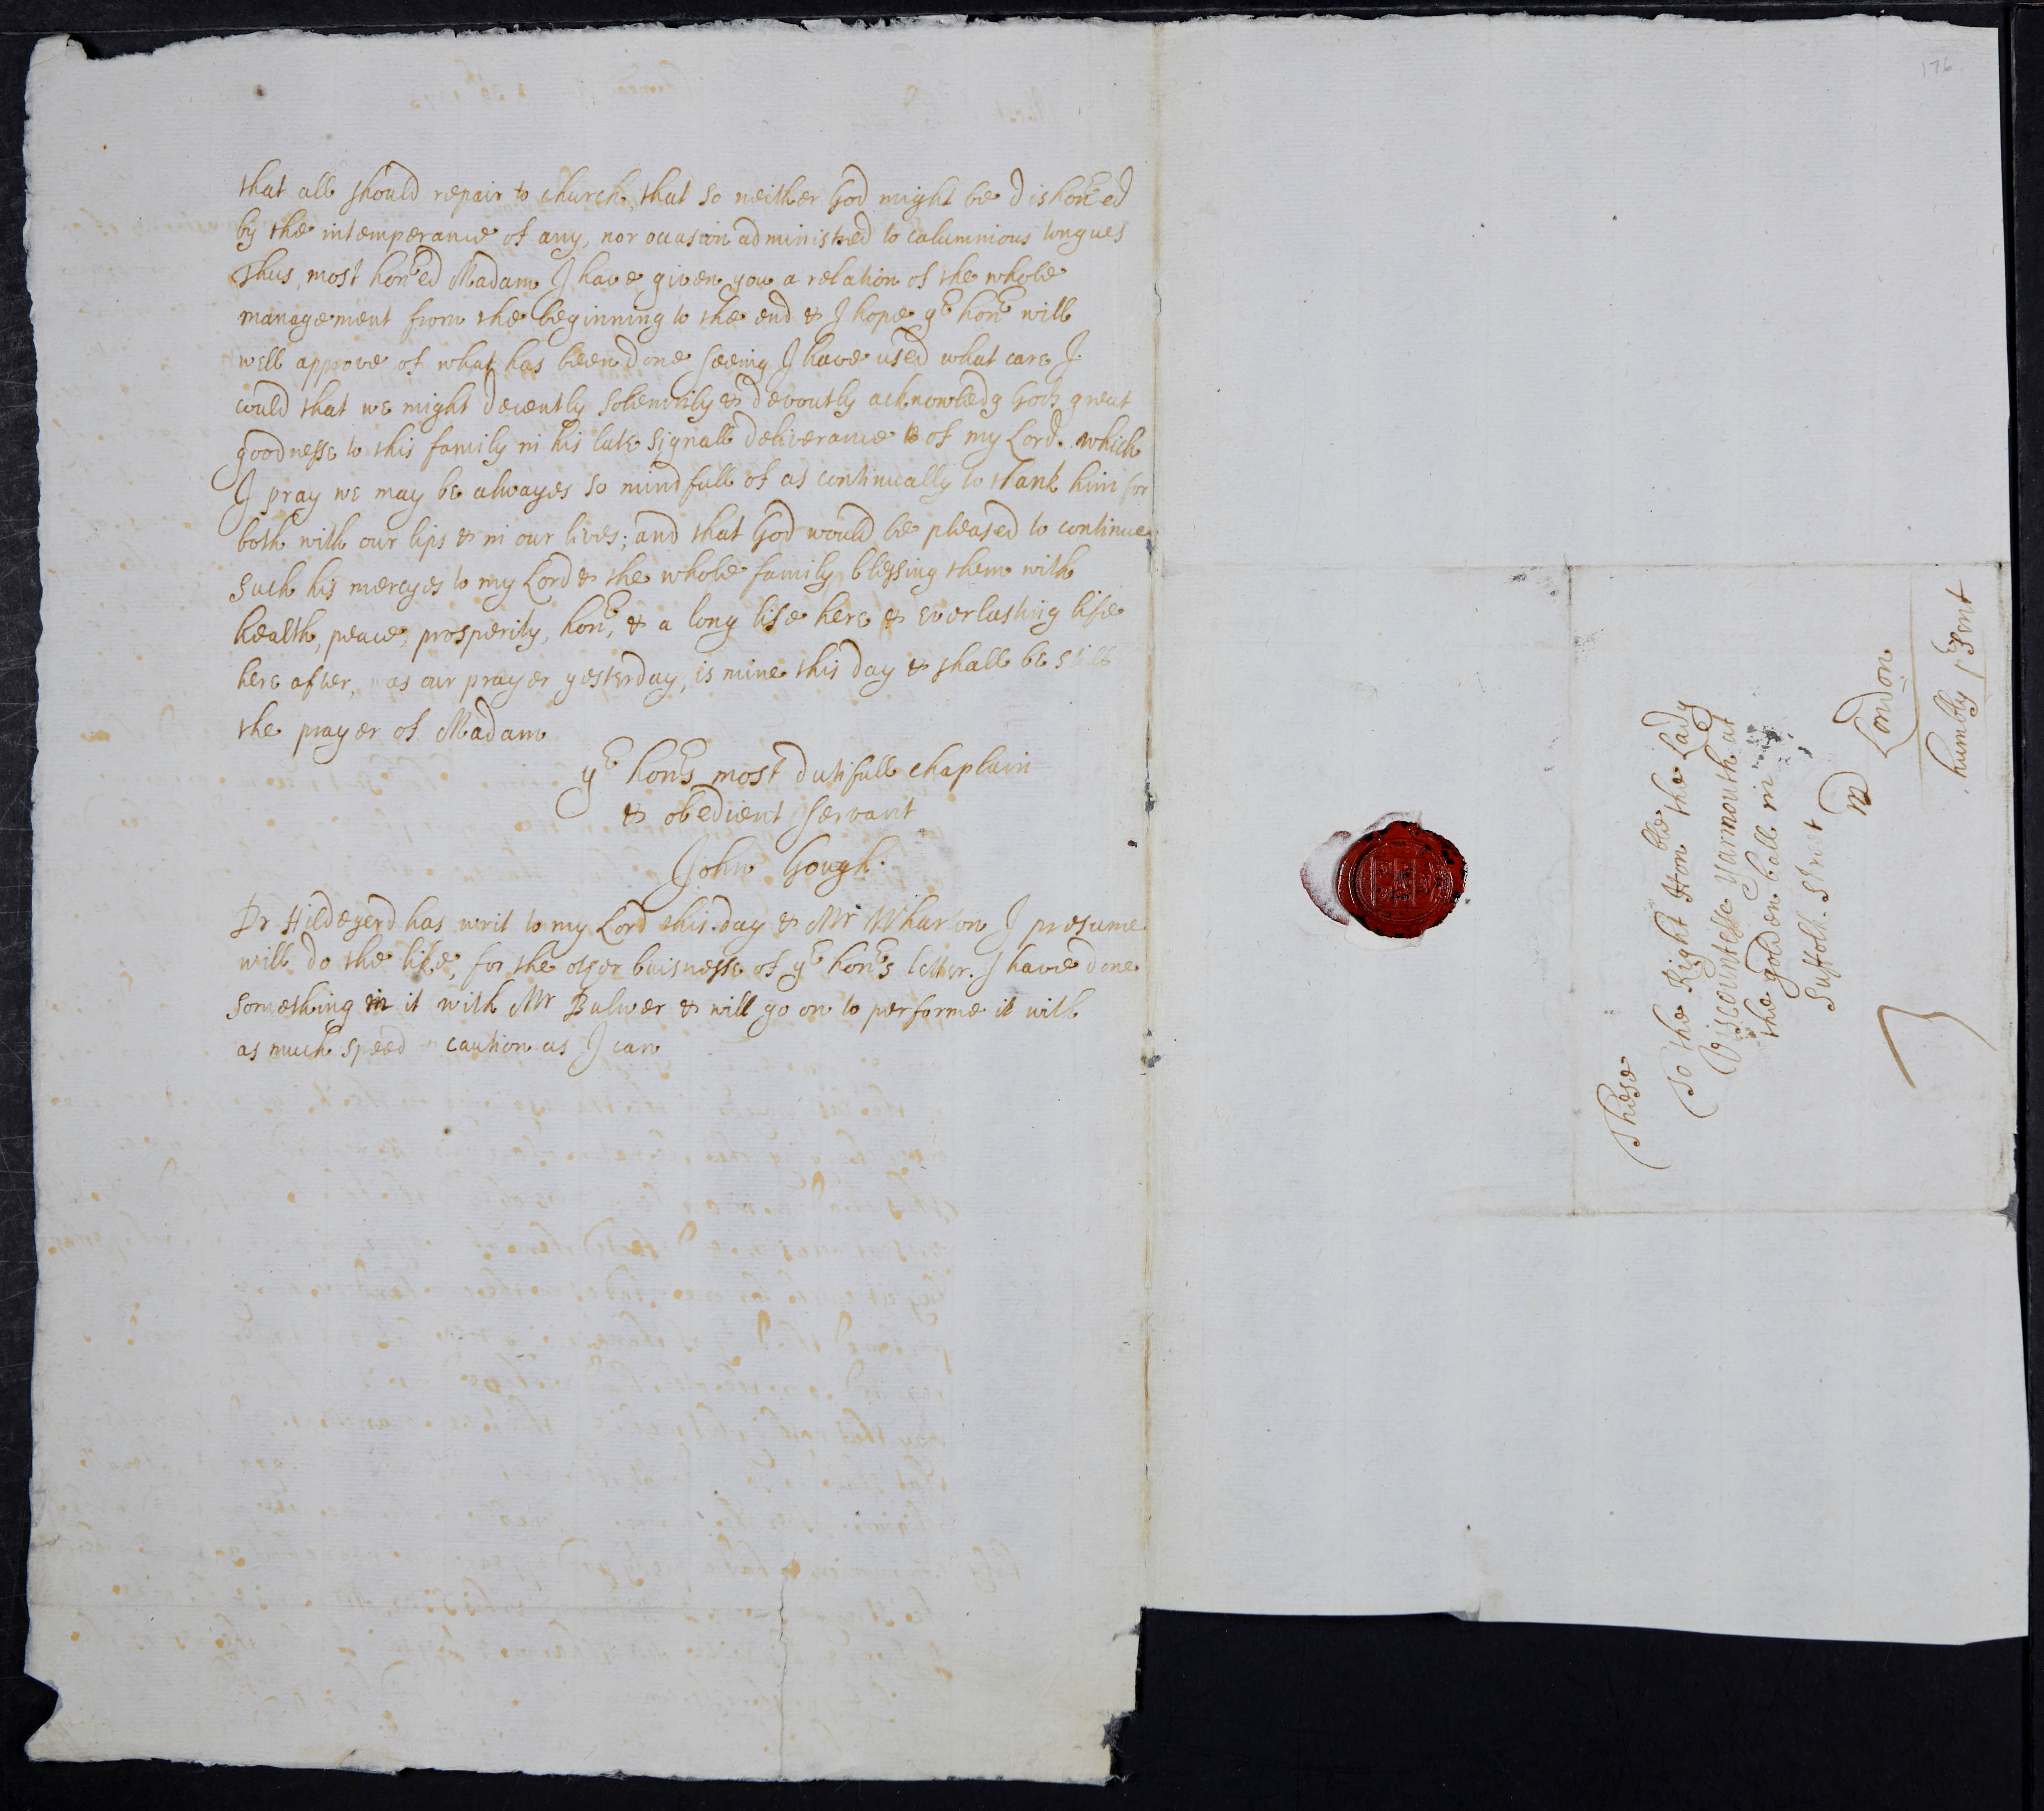 that all should repair to church, that so neither God might be dishonred
by the intemperance of any, nor occasion administred to calumnious tongues
Thus, most honred Madam I have given you a relation of the whole
management from the beginning to the end & I hope yr honr will
well approve of what has been done seeing I have used what care I
could that we might decently solemnly & devoutly acknowledg Gods great
goodnesse to this family in his late signall deliverance of my Lord. which
I pray we may be alwayes so mindfull of as continually to thank him for
both with our lips & in our lives; and that God would be pleased to continue
such his mercyes to my Lord & the whole family blessing them with
health, peace, prosperity, honr, & a long life here & everlasting life
here after, as our prayer yesterday, is mine this day & shall be still
the prayer of Madam
yr honrs most dutifull chaplain
& obedient servant
John Gough.
Dr Hildeyerd has writ to my Lord this day & Mr Wharton I presume
will do the like, for the other buisnesse of yr honrs letter. I have done
something in it with Mr Bulwer & will go on to performe it with
as much speed caution as I can
176
These
To the Right Honble the Lady
Viscountesse Yarmouth at
the golden ball in
Suffolk Street
in
London
humbly prsent